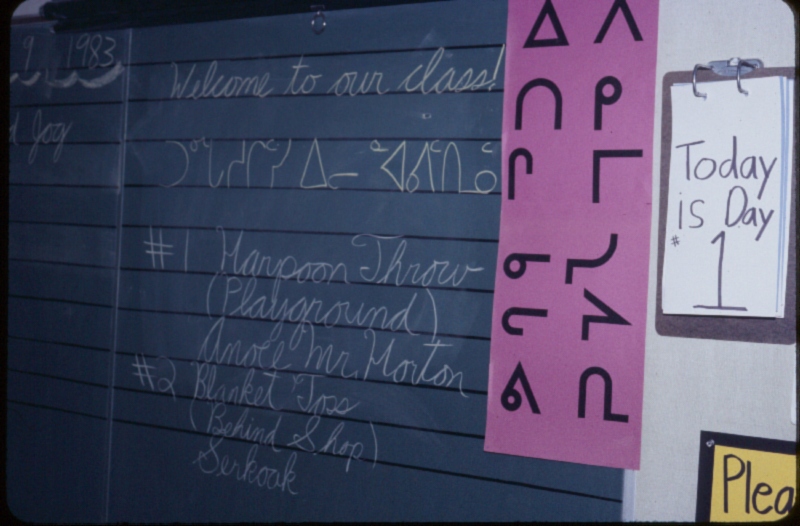 9 1983
Joy
Welcome to our class!
#1 Harpoon Throw
(Playground)
Anoee Mr. Horton
#2 Blanket Toss
(Behind Shop)
Serkoak
ᐃ ᐱ
ᑎ ᑭ
ᒋ ᒥ
ᓂ ᓯ
ᓕ ᔨ
ᕕ ᕆ
Today
is Day
# 1
Plea